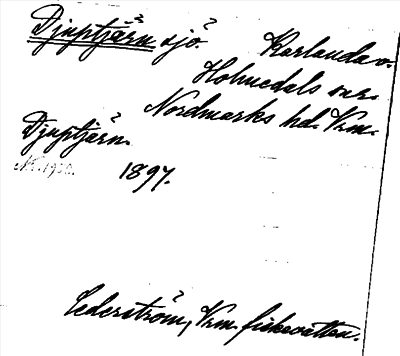 Djuptjärn sjö. Karlanda o.
Holmedals snr.
Nordmarks hd. Vrm.
Djuptjärn.
1897.
Cederström, Vrm. fiskevatten.